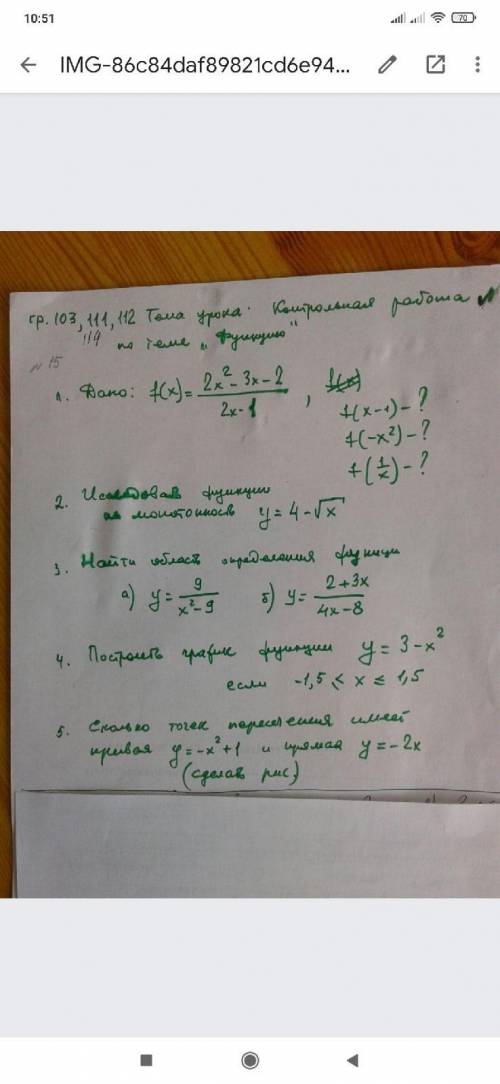 10:51
70
IMG-86c84daf89821cd6e94...
гр. 103, 111, 112 Тема урока: Контрольная работа
119 по теме „Функции"
№ 15
1. Дано: f(x) = (2x² - 3x - 2)/(2x - 1), f(x)
f(x-1) - ?
f(-x²) - ?
f(1/x) - ?
2. функции
на y = 4 - √x
3. Найти область определения функции
а) y = 9/(x² - 9) б) y = (2 + 3x)/(4x - 8)
4. Построить график функции y = 3 - x²
если -1,5 ≤ x ≤ 1,5
5. Сколько точек пересечения имеет
кривая y = -x² + 1 и прямая y = -2x
(сделав рис)